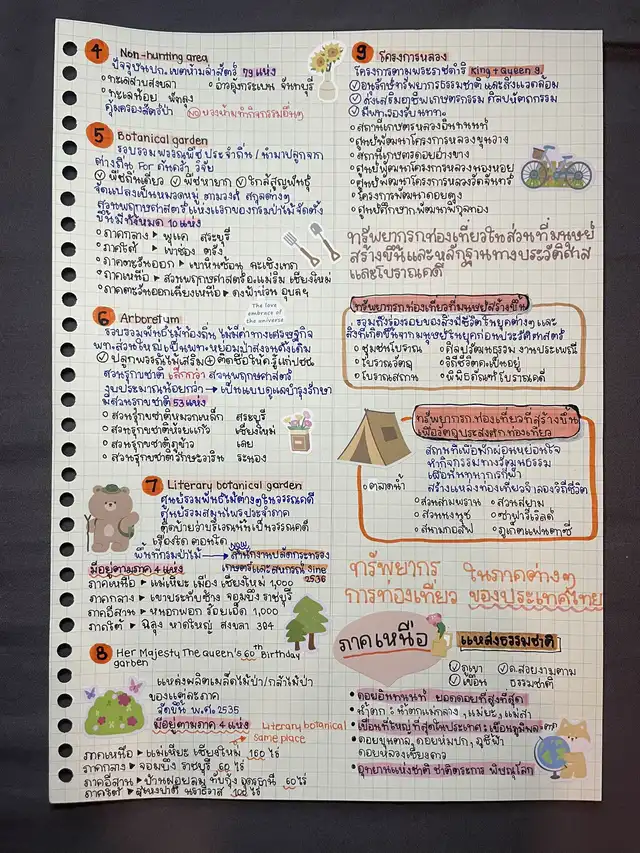 4 Non-hunting area
ปัจจุบันปท. เขตห้ามล่าสัตว์ 79 แห่ง
○ทะเลสาบสงขลา ○อ่าวคุ้งกระเบน จันทบุรี
○ทะเลน้อย พัทลุง
คุ้มครองสัตว์ป่า
5 Botanical garden
รวบรวมพรรณพืชประจำถิ่น / นำมาปลูกจาก
ต่างถิ่น For ค้นคว้า วิจัย
พืชถิ่นเดียว พืชหายาก ใกล้สูญพันธุ์
จัดแปลงเป็นหมวดหมู่ ตามวงศ์ สกุลต่างๆ
สวนพฤกษศาสตร์แห่งแรกของกรมป่าไม้จัดตั้ง
ขึ้นมีทั้งหมด 10 แห่ง
ภาคกลาง ▸ พุแค สระบุรี
ภาคใต้ ▸ เขาช่อง ตรัง
ภาคตะวันออก ▸ เขาหินซ้อน ฉะเชิงเทรา
ภาคเหนือ ▸ สวนพฤกษศาสตร์แม่ริม เชียงใหม่
ภาคตะวันออกเฉียงเหนือ ▸ ดงฟ้าห่วน อุบลฯ
The love
embrace of
the universe
6 Arboretum
รวบรวมพันธุ์ไม้ท้องถิ่น ไม้มีค่าทางเศรษฐกิจ
พท.ส่วนใหญ่เป็นพท.หย่อมป่าสงวนดั้งเดิม
ปลูกพรรณไม้เสริม + คิดชื่อให้ครู้แก่ปชช
สวนรุกขชาติ เล็กกว่า สวนพฤกษศาสตร์
งบประมาณน้อยกว่า → เป็นแบบดูแลบำรุงรักษา
มีสวนรุกขชาติ 53 แห่ง
○สวนรุกขชาติมวกเหล็ก สระบุรี
○สวนรุกขชาติห้วยแก้ว เชียงใหม่
○สวนรุกขชาติภูข้าว เลย
○สวนรุกขชาติรักษะวาริน ระนอง
7 Literary botanical garden
ศูนย์รวมพันธุ์ไม้ต่างๆในวรรณคดี
ศูนย์รวมสมุนไพรประจำภาค
ติดป้ายว่าบริเวณนั้นเป็นวรรณคดี
เรื่องใด ตอนใด
พื้นที่กรมป่าไม้ → สำนักงานปลัดกระทรวง
now
เกษตรและสหกรณ์
2536
มีอยู่ตามภาค 4 แห่ง
ภาคเหนือ ▸ แม่เหียะ เมือง เชียงใหม่ 1,000
ภาคกลาง ▸ เขาประทับช้าง จอมบึง ราชบุรี
ภาคอีสาน ▸ หนอกพอก ร้อยเอ็ด 1,000
ภาคใต้ ▸ ฉลุง หาดใหญ่ สงขลา 384
8 Her Majesty The queen's 60th Birthday
garben
แหล่งผลิตเมล็ดไม้ป่า/กล้าไม้ป่า
ของแต่ละภาค
จัดขึ้น พ.ศ. 2535
มีอยู่ตามภาค 4 แห่ง
Literary botanical
same place
ภาคเหนือ ▸ แม่เหียะ เชียงใหม่ 160 ไร่
ภาคกลาง ▸ จอมบึง ราชบุรี 60 ไร่
ภาคอีสาน ▸ บ้านฝอยลม ทับกุง อุดรธานี 60 ไร่
ภาคใต้ ▸ สุไหงปาดี นราธิวาส 100 ไร่
9 โครงการหลวง
โครงการตามพระราชดำริ King + Queen 9
อนุรักษ์ทรัพยากรธรรมชาติและสิ่งแวดล้อม
ส่งเสริมอาชีพเกษตรกรรม ศิลปหัตถกรรม
○สถานีเกษตรหลวงอินทนนท์
○ศูนย์พัฒนาโครงการหลวงขุนวาง
○สถานีเกษตรดอยอ่างขาง
○ศูนย์พัฒนาโครงการหลวงหนองหอย
○ศูนย์พัฒนาโครงการหลวงวัดจันทร์
○โครงการพัฒนาดอยตุง
○ศูนย์ศึกษาการพัฒนาพิกุลทอง
ทรัพยากรกท่องเที่ยวในส่วนที่มนุษย์
สร้างขึ้นและหลักฐานทางประวัติศาส
และโบราณคดี
ทรัพยากรกท่องเที่ยวที่มนุษย์สร้างขึ้น
รวมถึงร่องรอยของสิ่งมีชีวิตในยุคต่างๆ และ
สิ่งที่เกิดขึ้นจากมนุษย์ในยุคก่อนประวัติศาสตร์
○ชุมชนโบราณ ○ศิลปวัฒนธรรม งานประเพณี
○โบราณวัตถุ ○วิถีชีวิตคเป็นอยู่
○โบราณสถาน ○พิพิธภัณฑ์โบราณคดี
ทรัพยากรก.ท่องเที่ยวที่สร้างขึ้น
เพื่อวัตถุประสงค์กท่องเที่ยว
สถานที่เพื่อพักผ่อนหย่อนใจ
ทำกิจกรรมทางวัฒนธรรม
เพื่อนันทนาการกีฬา
สร้างแหล่งท่องเที่ยวจำลองวิถีชีวิต
○ตลาดน้ำ
○สวนสามพราน ○สวนสยาม
○สวนนงนุช ○ซาฟารีเวิลด์
○สนามกอล์ฟ ○ภูเก็ตแฟนตาซี
ทรัพยากร ในภาคต่างๆ
การท่องเที่ยว ของประเทศไทย
ภาคเหนือ
แหล่งธรรมชาติ
ภูเขา ค.สวยงามตาม
เขื่อน ธรรมชาติ
• ดอยอินทนนท์ ยอดดอยที่สูงที่สุด
• น้ำตก : น้ำตกแม่กลาง, แม่ยะ, แม่สา
• เขื่อนที่ใหญ่ที่สุดในประเทศ : เขื่อนภูมิพล
• ดอยขุนตาล, ดอยหมปก, ภูชี้ฟ้า
ดอยหลวงเชียงดาว
• อุทยานแห่งชาติ ชาติตระการ พิษณุโลก